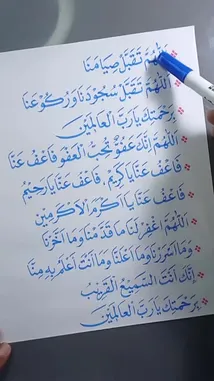 اَللّٰهُمَّ تَقَبَّلْ صِيَامَنَا
اَللّٰهُمَّ تَقَبَّلْ سُجُوْدَنَا وَرُكُوْعَنَا
بِرَحْمَتِكَ يَارَبَّ الْعَالَمِيْنَ
اَللّٰهُمَّ اِنَّكَ عَفُوٌّ تُحِبُّ الْعَفْوَ فَاعْفُ عَنَّا
فَاعْفُ عَنَّا يَا كَرِيْمُ، فَاعْفُ عَنَّا يَارَحِيْمُ
فَاعْفُ عَنَّا يَا اَكْرَمَ الْاَكْرَمِيْنَ
اَللّٰهُمَّ اغْفِرْ لَنَا مَا قَدَّمْنَا وَمَا اَخَّرْنَا
وَمَا اَسْرَرْنَا وَمَا اَعْلَنَّا وَمَا اَنْتَ اَعْلَمُ بِهِ مِنَّا
اِنَّكَ اَنْتَ السَّمِيْعُ الْقَرِيْبُ
بِرَحْمَتِكَ يَارَبَّ الْعَالَمِيْنَ